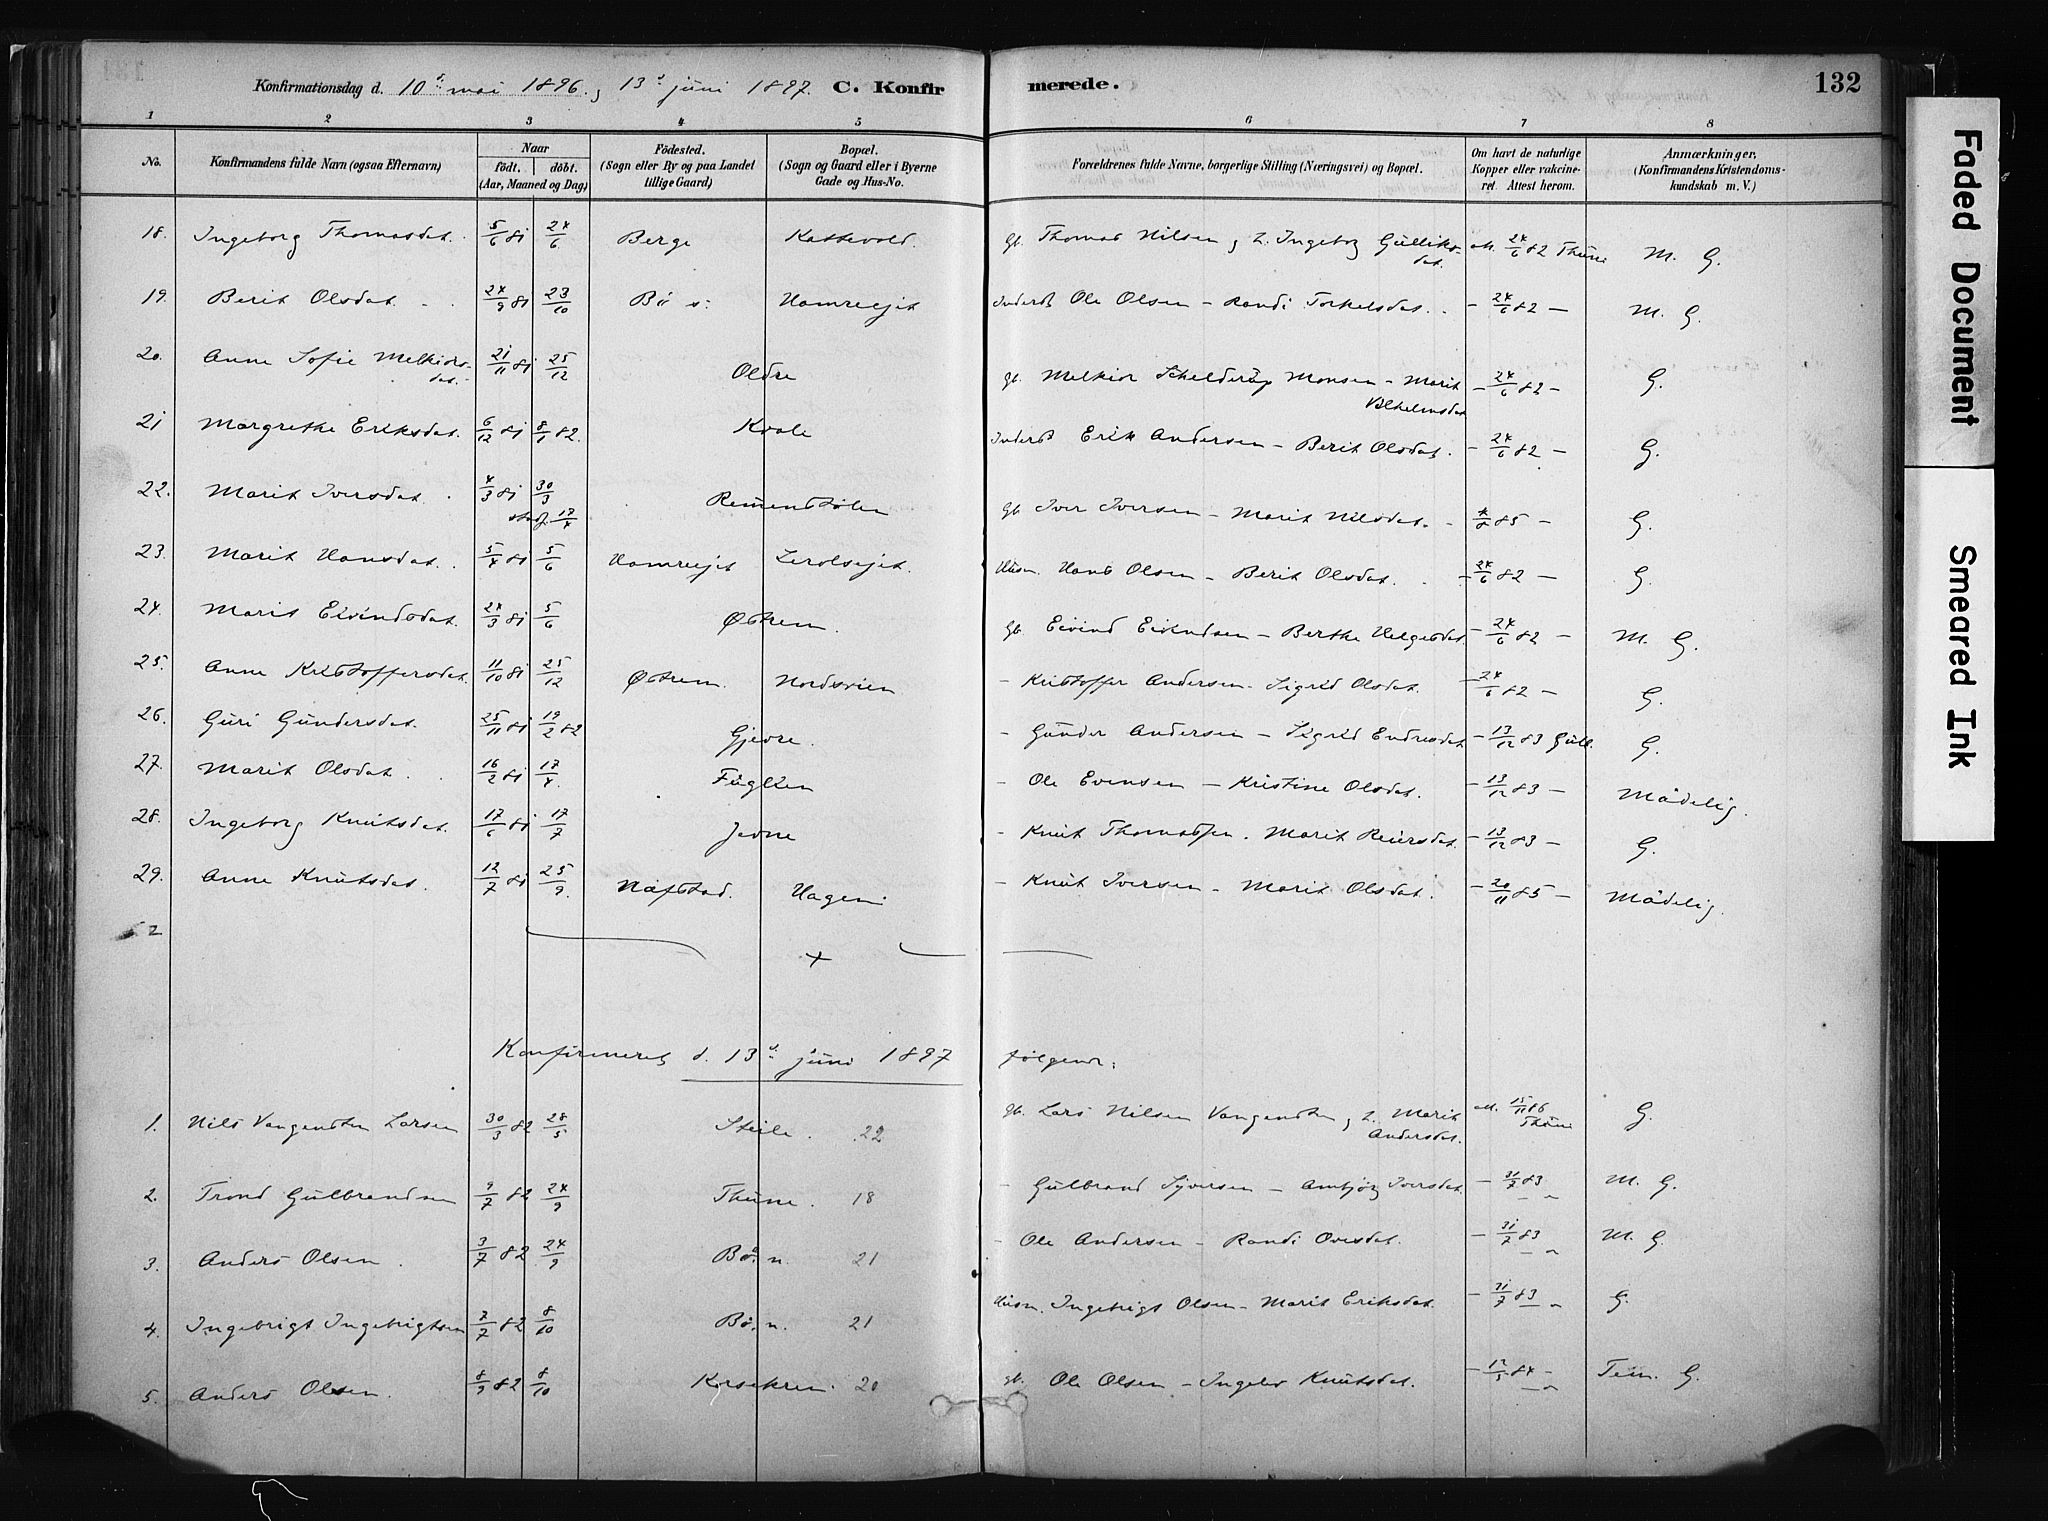 Konfirmationsdag d. 10d. mai 1896 og 13d juni 1897. C. Konfirmerede. 132
1 2 3 4 5 6 7 8
No. Konfirmandens fulde Navn (ogsaa Efternavn) Naar født. døbt. (Aar, Maaned og Dag) Fødested. (Sogn eller By og paa Landet tillige Gaard) Bopæl. (Sogn og Gaard eller i Byerne Gade og Hus-No. Forældrenes fulde Navne, borgerlige Stilling (Næringsvei) og Bopæl. Om havt de naturlige Kopper eller vakcineret. Attest herom. Anmærkninger. (Konfirmandens Kristendomskundskab m. V.)
18. Ingeborg Thomasdat. 5/6 81 24/6 Berge Kattevold. gb. Thomas Nilsen og h. Ingeborg Gulliksdat. att. 24/6 82 Thune M. G.
19. Berit Olsdat. 24/9 81 23/10 Bø s. Hamreejet Inderst Ole Olsen - Randi Torkelsdat. - 24/6 82 - M. G.
20. Anne Sofie Melkiorsdat. 21/11 81 25/12 Oldre gb. Melkior Schelderup Monsen - Marit Vilhelmsdat - 24/6 82 - G.
21 Margrethe Eriksdat. 6/12 81 8/1 82. Kvale Inderst Erik Andersen - Berit Olsdat. - 24/6 82 - G.
22. Marit Iversdat. 4/3 81 30/3 stadf. 17/4 Remmenstølen gb. Iver Iversen - Marit Nilsdat. - 4/8 85 - G.
23. Marit Hansdat. 5/4 81 5/6 Hamreejet Lerolsejet. Husm. Hans Olsen - Berit Olsdat. - 24/6 82 - G.
24. Marit Eivindsdat. 24/3 81 5/6 Østrem. gb. Eivind Eivindsen - Berthe Helgesdat - 24/6 82 - M. G.
25. Anne Kristoffersdat. 11/10 81 25/12 Østrem. Nordsvien - Kristoffer Andersen - Sigrid Olsdat. - 24/6 82 - G.
26. Guri Gundersdat. 25/11 81 19/2 82 Gjevre. - Gunder Andersen - Sigrid Endresdat - 13/12 83 Gull. G.
27. Marit Olsdat. 16/2 81 17/4. Fuglien - Ole Evensen - Kristine Olsdat. - 13/12 83 - Mådelig.
28. Ingeborg Knutsdat. 17/6 81 17/7 Jevne - Knut Thomassen. Marit Reiersdat. - 13/12 83 - G.
29. Anne Knutsdat. 12/7 81 25/9. Nøfstad. Hagen - Knut Iversen - Marit Olsdat. - 20/11 85 - Mådelig.
Konfirmeret d. 13d. juni 1897 følgende:
1. Nils Vangensten Larsen 30/3 82 28/5 Steile. 22 gb. Lars Nilsen Vangensten og h. Marit Andersdat. att. 15/11 86 Thune G.
2. Trond Gulbrandsen 9/7 82 24/9 Thune. 18 - Gulbrand Syversen - Ambjør Iversdat. - 31/7 83 - M. G.
3. Anders Olsen 3/7 82 24/9 Bø. n. 21 - Ole Andersen - Randi Ovesdat. - 31/7 83 - M. G.
4. Ingebrigt Ingebrigtsen 7/7 82 8/10 Bø. n. 21 Husm. Ingebrigt Olsen - Marit Eriksdat. - 31/7 83 - G.
5. Anders Olsen. 8/9 82 8/10 Korsekren. 20 gb. Ole Olsen - Ingebor Knutsdat. Tem. G.
Faded Document
Smeared Ink